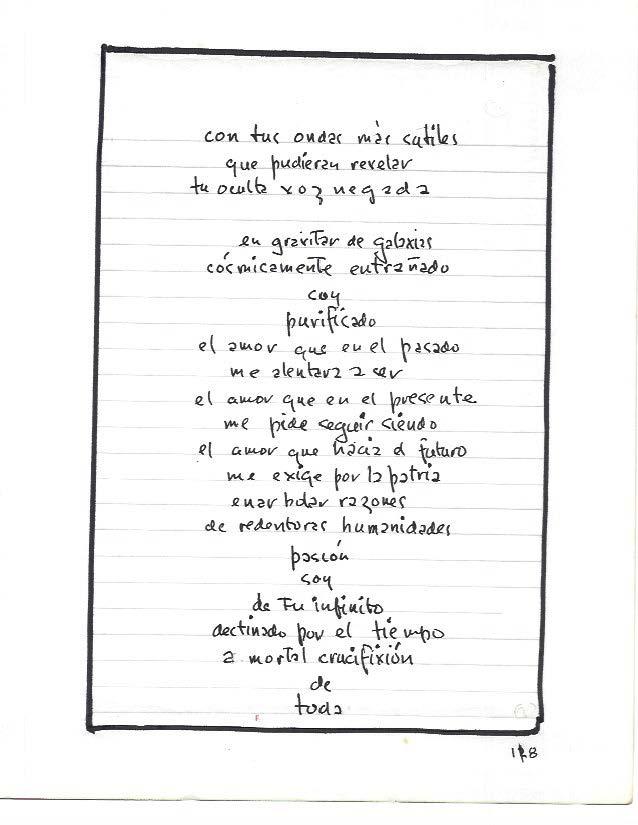 con tus ondas más sutiles
que pudieran revelar
tu oculta voz negada
en gravitar de galaxias
cósmicamente entrañado
soy
purificado
el amor que en el pasado
me alentara a ser
el amor que en el presente
me pide seguir siendo
el amor que hacia el futuro
me exige por la patria
enarbolar razones
de redentoras humanidades
pasión
soy
de Tu infinito
destinado por el tiempo
a mortal crucifixión
de
toda